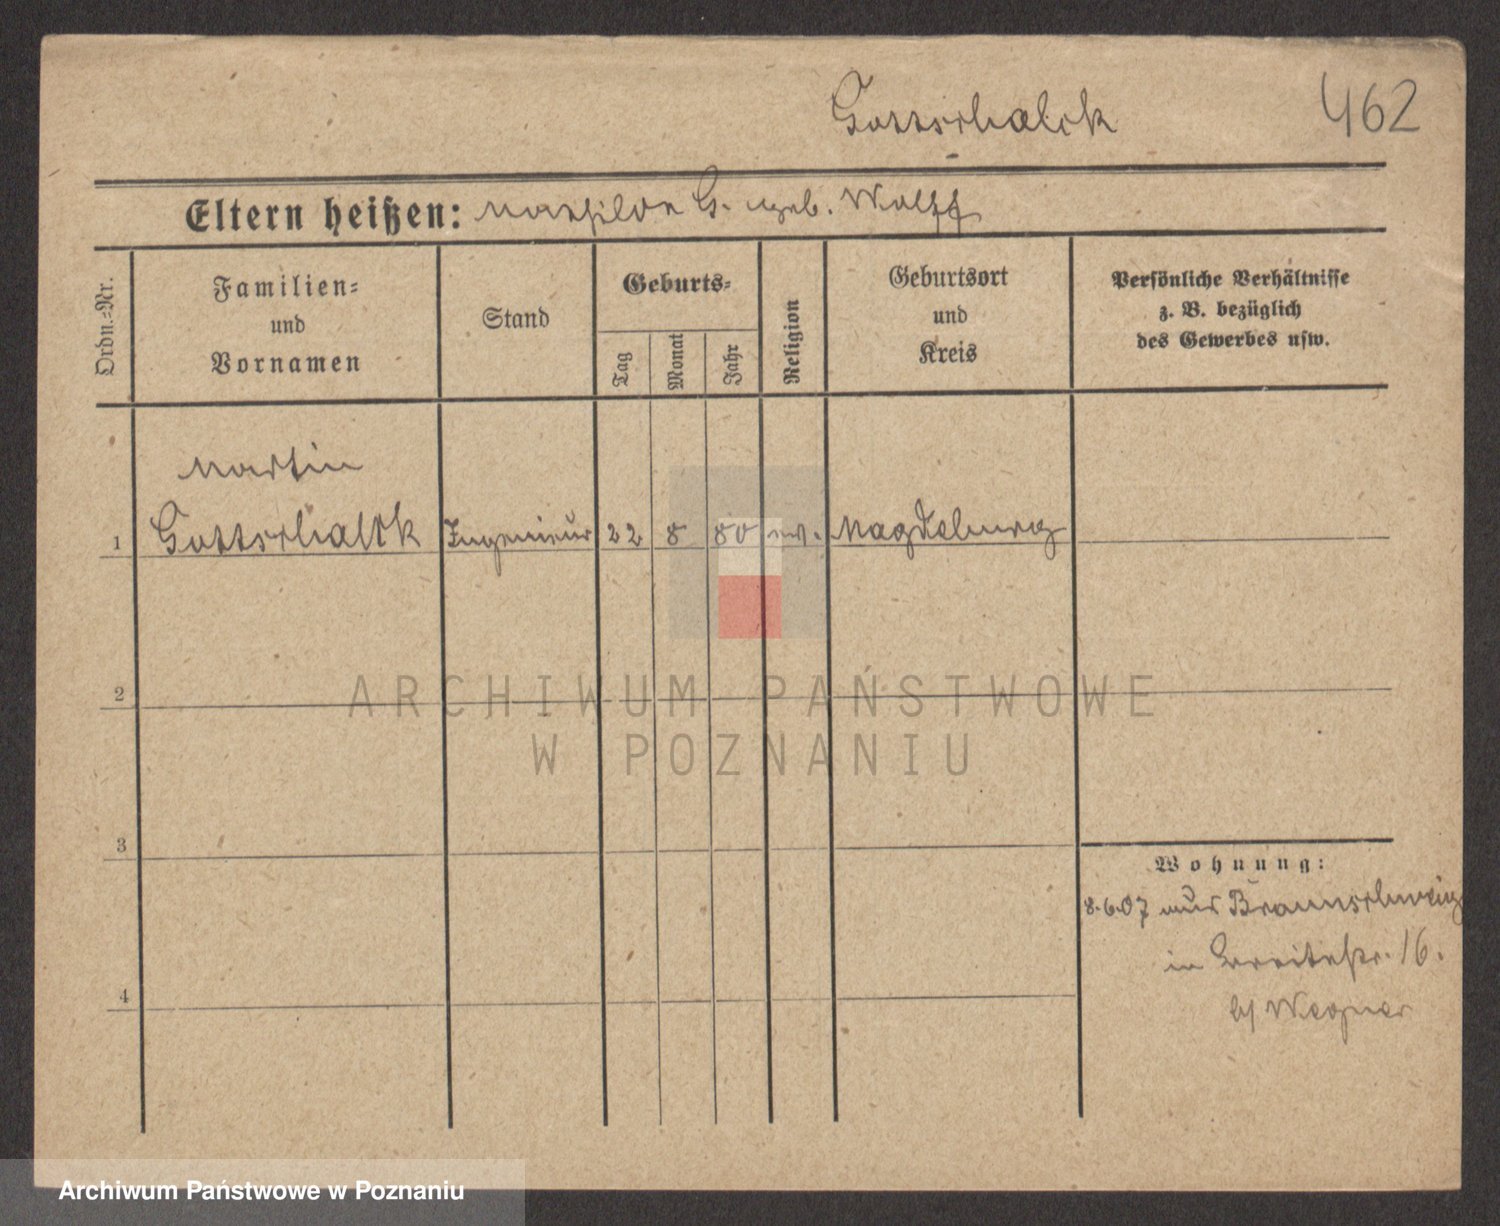 Gottschalck 462
Eltern heißen: Mathilde G. geb. Wolff
Ordn.=Nr.
Familien=
und
Vornamen
Stand
Geburts=
Tag
Monat
Jahr
Religion
Geburtsort
und
Kreis
Persönliche Verhältnisse
z. B. bezüglich
des Gewerbes usw.
Martin
1 Gottschalck Ingenieur 22 8 80 ev. Magdeburg
2
ARCHIWUM PAŃSTWOWE
W POZNANIU
3
Wohnung:
8.6.07 aus Braunschweig
in Breitestr. 16.
4
b/ Wegner
Archiwum Państwowe w Poznaniu